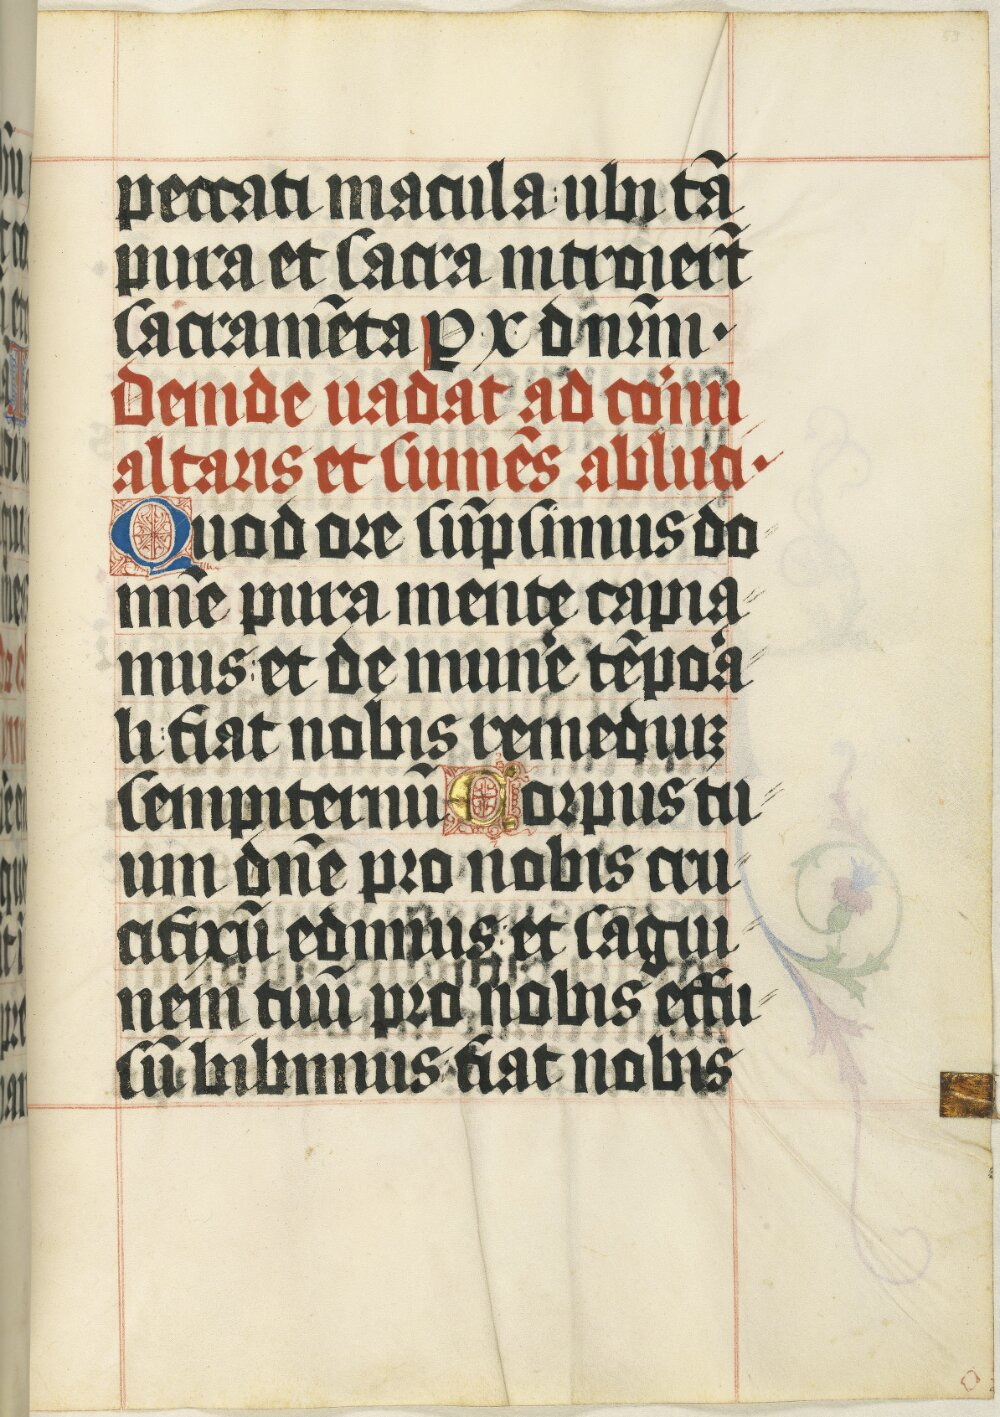 peccati macula: ubi tā
pura et sacra introiert̄
sacramēta P x dnr̄m·
Deinde uadat ad cornu
altaris et sumēs abluci·
Quod ore sūpsimus do
mīe pura mente capia
mus: et de mun'e tēpo'a
li: fiat nobis remediuʒ
sempiternū Corpus tu
um dn̄e pro nobis cru
cifixū edimus: et sagui
nem tuū pro nobis effu
sū bibimus: fiat nobis